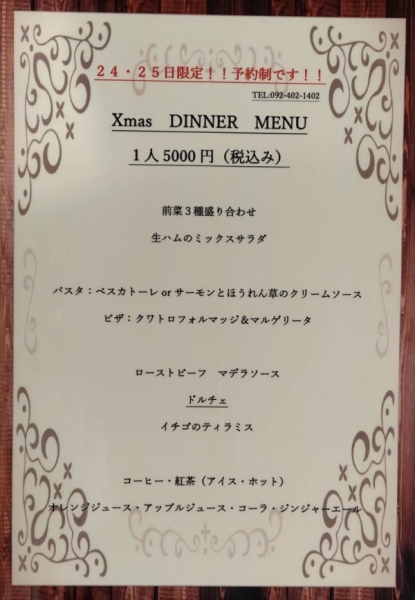 24・25日限定!!予約制です!!
TEL:092-402-1402
Xmas DINNER MENU
1人5000円（税込み）
前菜3種盛り合わせ
生ハムのミックスサラダ
パスタ：ペスカトーレorサーモンとほうれん草のクリームソース
ピザ：クワトロフォルマッジ＆マルゲリータ
ローストビーフ マデラソース
ドルチェ
イチゴのティラミス
コーヒー・紅茶（アイス・ホット）
オレンジジュース・アップルジュース・コーラ・ジンジャーエール